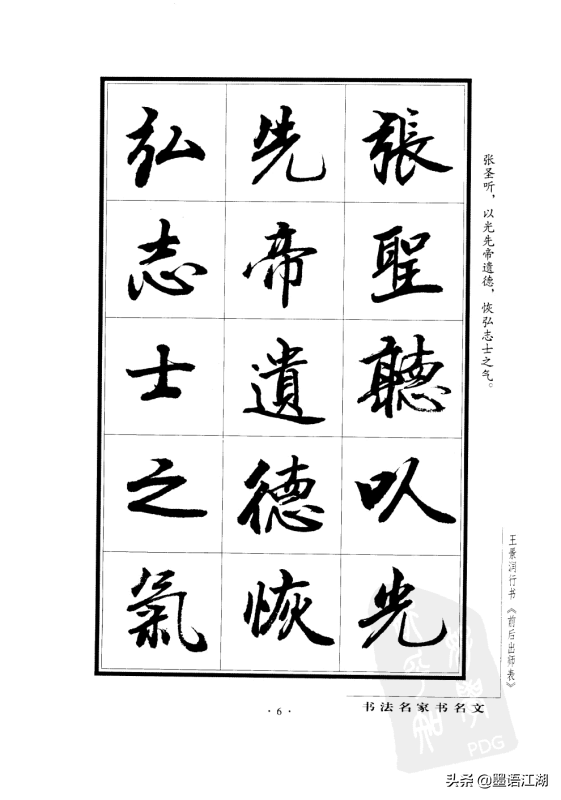 張聖聽以光
先帝遺德恢
弘志士之氣
张圣听，以光先帝遗德，恢弘志士之气。
王景润行书《前后出师表》
书法名家书名文
· 6 ·
PDG
头条 @墨语江湖